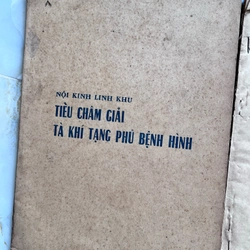 NỘI KINH LINH KHU
TIỂU CHÂM GIẢI
TÀ KHÍ TẠNG PHỦ BỆNH HÌNH